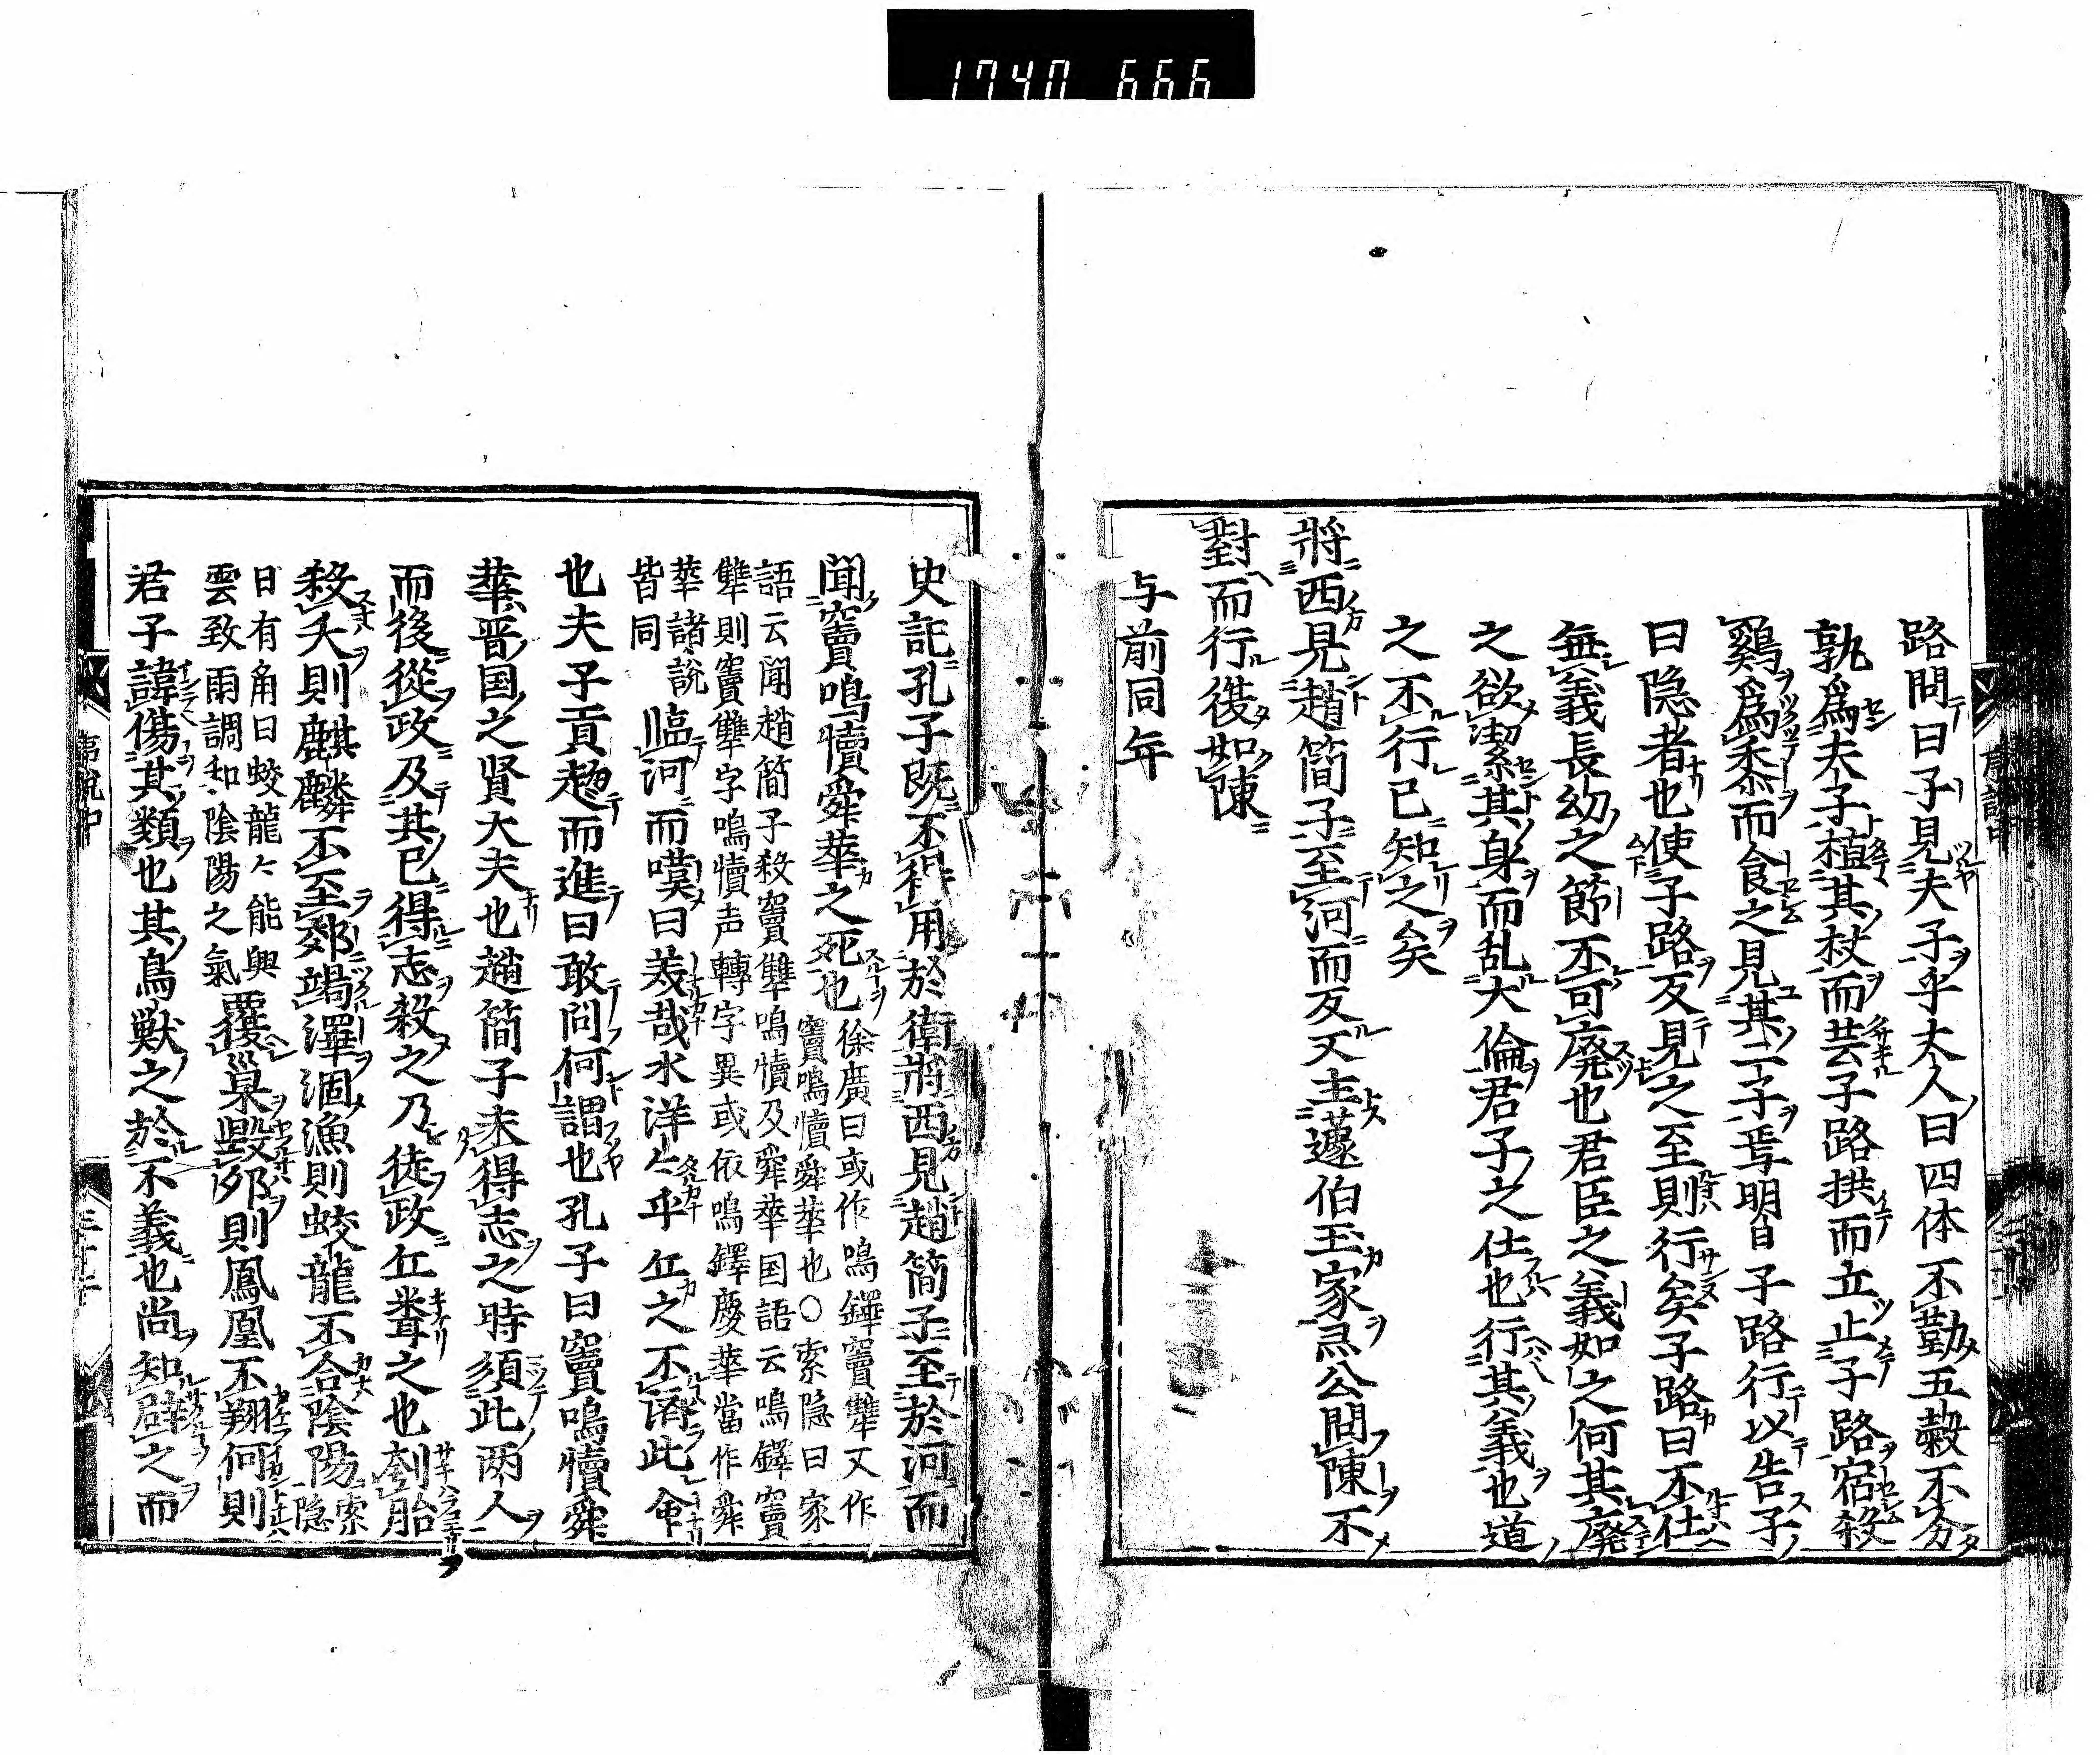 1740 666
路問曰子見夫子乎丈人曰四体不勤五穀不分
孰為夫子植其杖而芸子路拱而立止子路宿殺
鷄為黍而食之見其二子焉明日子路行以告子
曰隐者也使子路反見之至則行矣子路曰不仕
無義長幼之節不可廢也君臣之義如之何其廢
之欲潔其身而乱大倫君子之仕也行其義也道
之不行已知之矣
将西見趙簡子至河而反又主蘧伯玉家灵公問陳不
對而行復如陳
与前同年
史記孔子既不得用於衛將西見趙簡子至於河而
聞竇鳴犢舜華之死也徐廣曰或作鳴鐸竇犨又作
竇鳴犢舜華也○索隐曰家
語云聞趙簡子殺竇犨鳴犢及舜華国語云鳴鐸竇
犨則竇犨字鳴犢声轉字異或依鳴鐸慶華當作舜
華諸說
皆同
臨河而嘆曰羙哉水洋々乎丘之不濟此命
也夫子貢趍而進曰敢问何謂也孔子曰竇鳴犢舜
華晋国之賢大夫也趙簡子未得志之時須此两人
而後從政及其已得志殺之乃從政丘聞之也刳胎
殺夭則麒麟不至郊竭澤涸漁則蛟龍不合陰陽索
隐
曰有角曰蛟龍々能興
雲致雨調和陰陽之氣
覆巢毀卵則鳳凰不翔何則
君子諱傷其類也其鳥獣之於不義也尚知辟之而